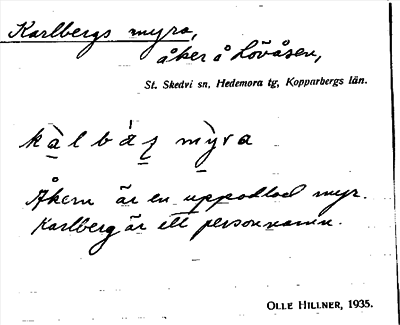 Karlbergs myra,
åker å Lövåsen,
St. Skedvi sn, Hedemora tg, Kopparbergs län.
kàlbáʂ mỳra
Åkern är en uppodlad myr.
Karlberg är ett personnamn.
OLLE HILLNER, 1935.